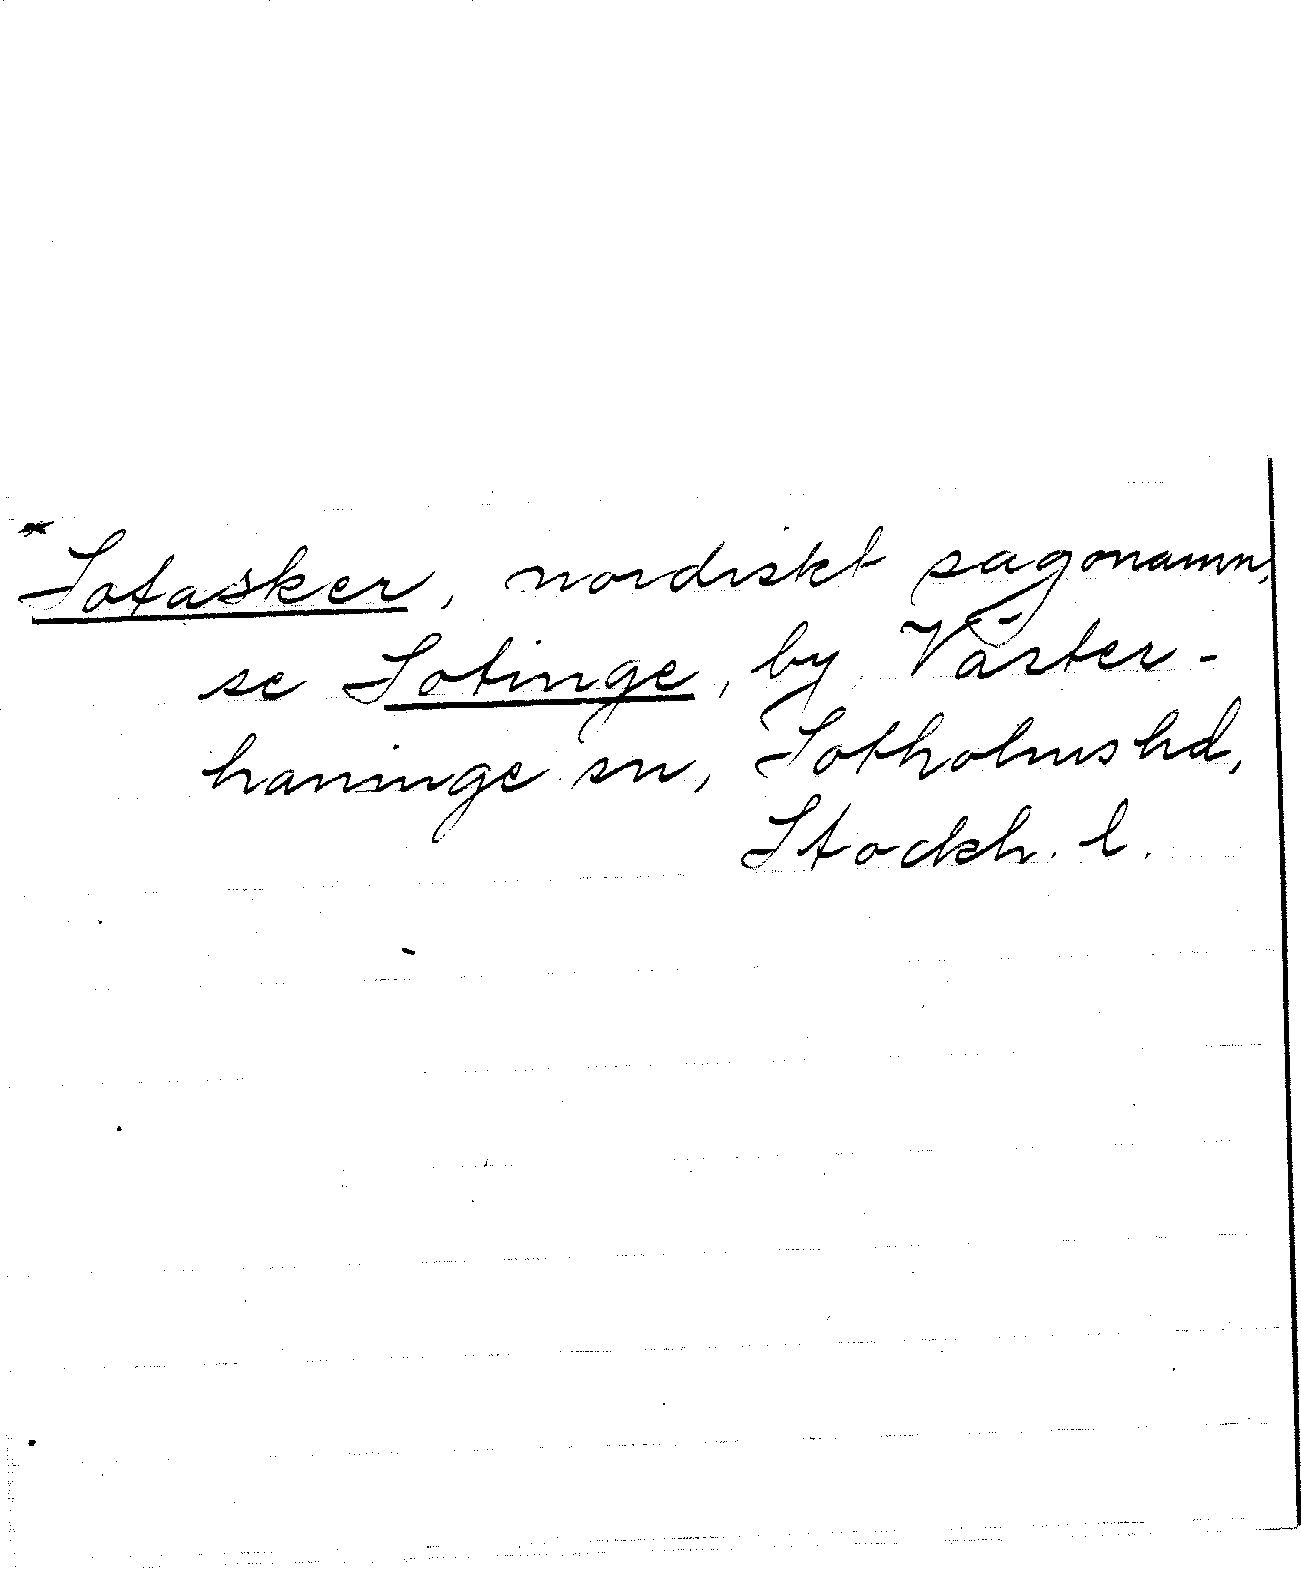 *Sotasker, nordiskt sagonamn,
se Sotinge, by Väster-
haninge sn, Sotholms hd,
Stockh. l.